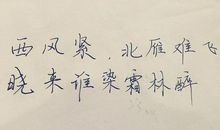 西风紧，北雁难飞
晓来谁染霜林醉